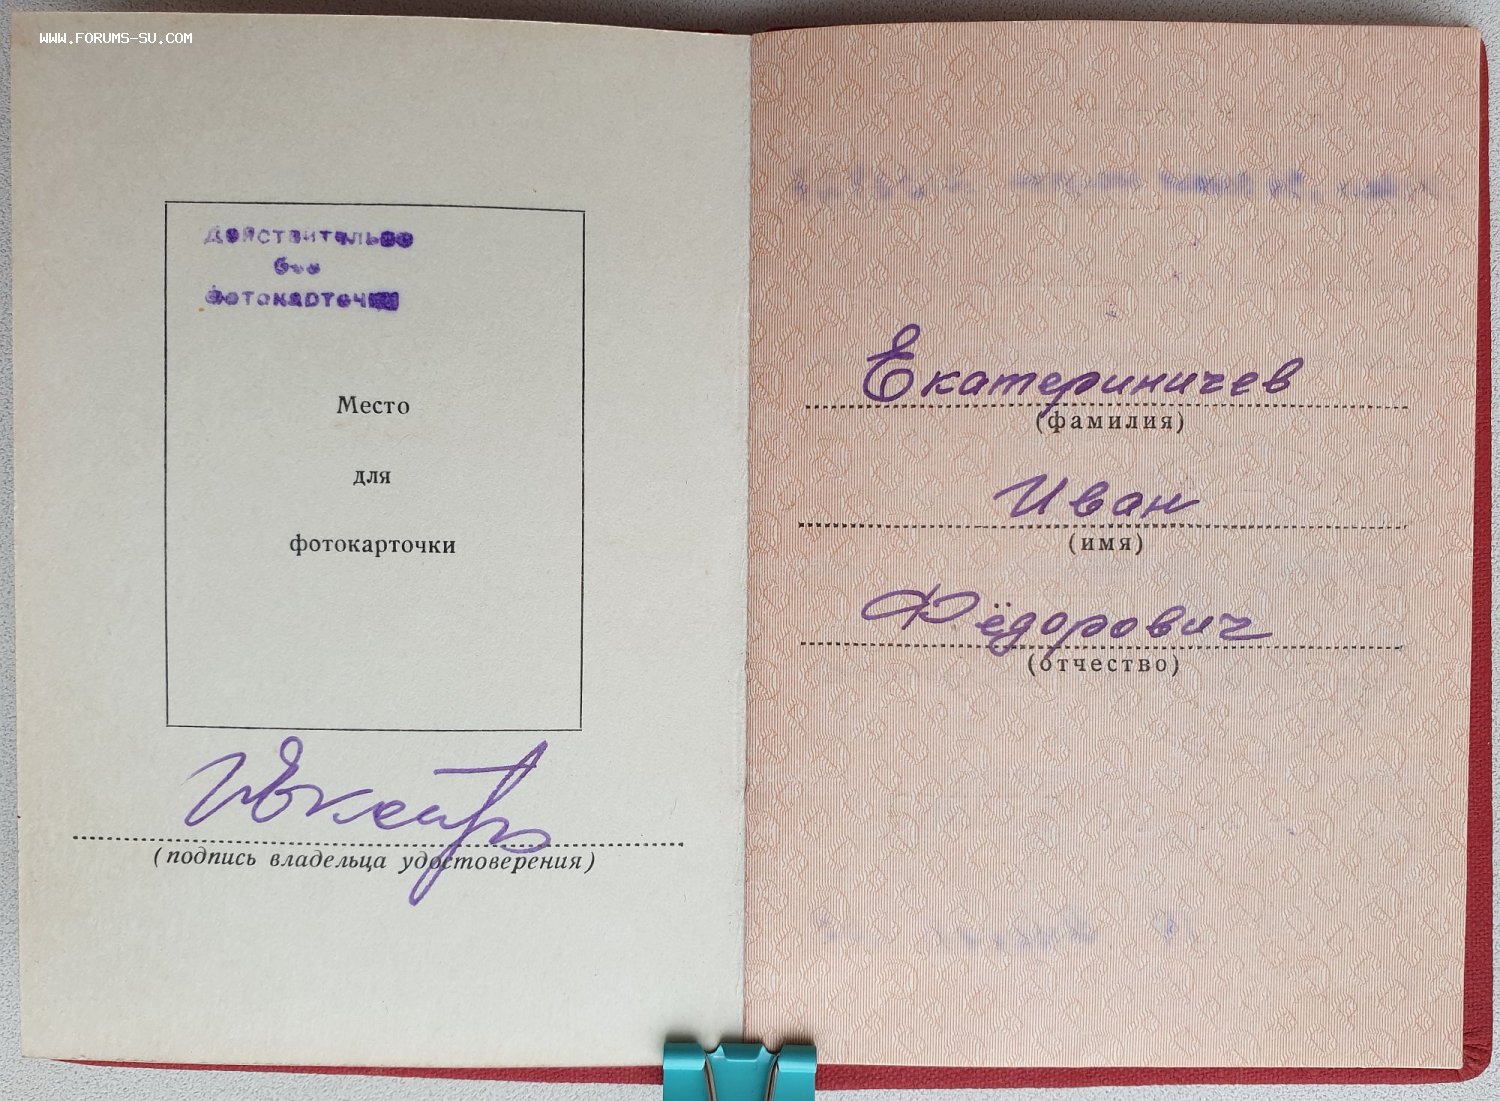 WWW.FORUMS-SU.COM
Действительно
без
фотокарточки
Место
для
фотокарточки
(подпись владельца удостоверения)
Екатериничев
(фамилия)
Иван
(имя)
Фёдорович
(отчество)